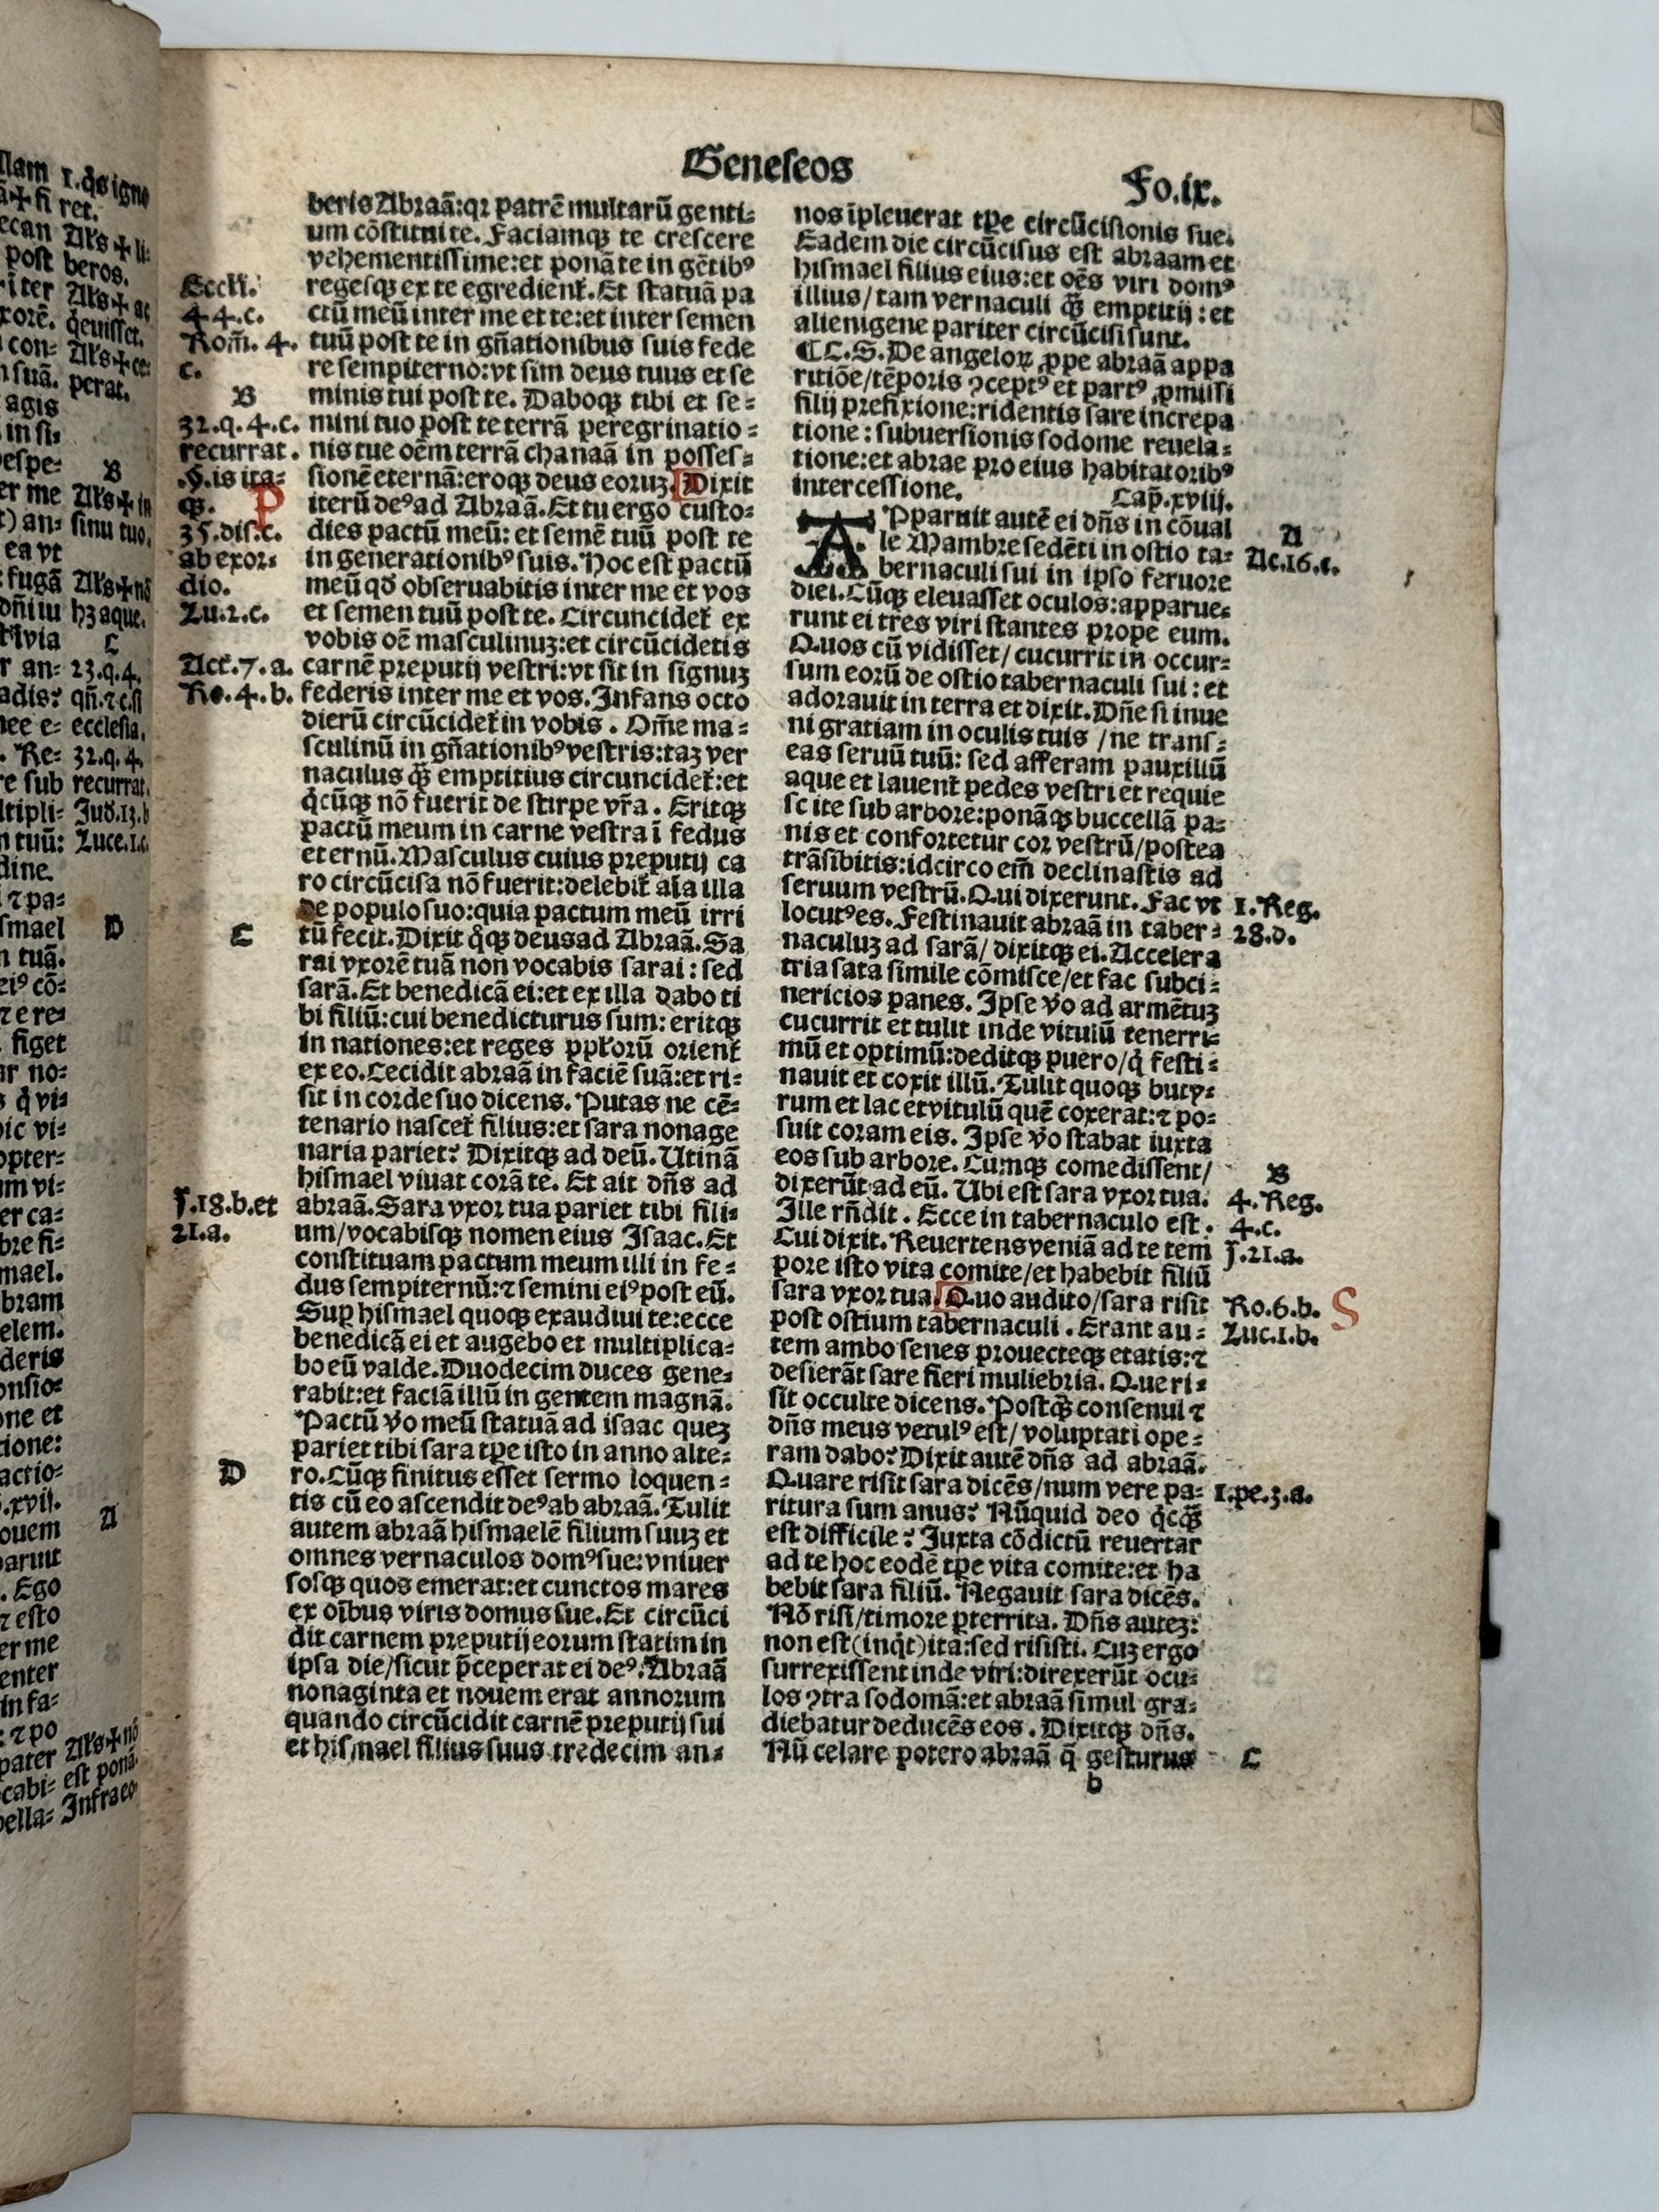 Geneseos
Fo.ix.
beris Abraã:qꝛ patrẽ multarũ genti⸗
um cõstitui te. Faciamqꝫ te crescere
vehementissime:et ponã te in gẽtibꝰ
regesqꝫ ex te egredient᷑. Et statuã pa
ctũ meũ inter me et te:et inter semen
tuũ post te in gñationibus suis fede
re sempiterno:vt sim deus tuus et se
minis tui post te. Daboqꝫ tibi et se⸗
mini tuo post te terrã peregrinatio⸗
nis tue oẽm terrã chanaã in posses⸗
sionẽ eternã:eroqꝫ deus eoruꝫ. Dixit
iterũ deꝰ ad Abraã. Et tu ergo custo⸗
dies pactũ meũ: et semẽ tuũ post te
in generationibꝰ suis. Hoc est pactũ
meũ qd̛ obseruabitis inter me et vos
et semen tuũ post te. Circuncidet᷑ ex
vobis oẽ masculinuꝫ:et circũcidetis
carnẽ preputij vestri:vt sit in signuꝫ
federis inter me et vos. Infans octo
dierũ circũcidet᷑ in vobis. Om̃e ma⸗
sculinũ in gñationibꝰ vestris:taꝫ ver
naculus q̃ꝫ emptitius circuncidet᷑:et
q̇cũqꝫ nõ fuerit de stirpe vr̃a. Eritqꝫ
pactũ meum in carne vestra ĩ fedus
eternũ. Masculus cuius preputij ca
ro circũcisa nõ fuerit:delebit᷑ aĩa illa
de populo suo:quia pactum meũ irri
tũ fecit. Dixit q̇qꝫ deus ad Abraã. Sa
rai vxorẽ tuã non vocabis sarai: sed
sarã. Et benedicã ei:et ex illa dabo ti
bi filiũ:cui benedicturus sum: eritqꝫ
in nationes:et reges pplorũ orient᷑
ex eo. Cecidit abraã in faciẽ suã:et ri⸗
sit in corde suo dicens. Putas ne cẽ⸗
tenario nascet᷑ filius:et sara nonage
naria pariet? Dixitqꝫ ad deũ. Utinã
hismael viuat corã te. Et ait dñs ad
abraã. Sara vxor tua pariet tibi fili⸗
um/vocabisqꝫ nomen eius Isaac. Et
constituam pactum meum illi in fe⸗
dus sempiternũ:⁊ semini eiꝰ post eũ.
Suꝑ hismael quoqꝫ exaudiui te:ecce
benedicã ei et augebo et multiplica⸗
bo eũ valde. Duodecim duces gene⸗
rabit:et faciã illũ in gentem magnã.
Pactũ v̛o meũ statuã ad isaac queꝫ
pariet tibi sara tꝑe isto in anno alte⸗
ro. Cũqꝫ finitus esset sermo loquen⸗
tis cũ eo ascendit deꝰ ab abraã. Tulit
autem abraã hismaelẽ filium suuꝫ et
omnes vernaculos domꝰ sue:vniuer
sosqꝫ quos emerat:et cunctos mares
ex oĩbus viris domus sue. Et circũci
dit carnem preputij eorum statim in
ipsa die/sicut p̃ceperat ei deꝰ. Abraã
nonaginta et nouem erat annorum
quando circũcidit carnẽ preputij sui
et hismael filius suus tredecim an⸗
Eccli.
44.c.
Rom̃. 4.
c.
B
32.q.4.c.
recurrat.
.§.is ita⸗
qꝫ.
P
35.dis.c.
ab exor⸗
dio.
Lu.2.c.
Act.7.a.
Ro.4.b.
C
ſ.18.b.et
21.a.
D
nos ĩpleuerat tꝑe circũcisionis sue.
Eadem die circũcisus est abraam et
hismael filius eius:et oẽs viri domꝰ
illius/tam vernaculi q̃ꝫ emptitij: et
alienigene pariter circũcisi sunt.
¶C.S. De angeloꝝ ꝓpe abraã appa
ritiõe/tẽporis ꝯceptꝰ et partꝰ ꝓmissi
filij prefixione:ridentis sare increpa
tione: subuersionis sodome reuela⸗
tione:et abrae pro eius habitatoribꝰ
intercessione. Cap̃.xviij.
APparuit autẽ ei dñs in cõual
le Mambre sedẽti in ostio ta⸗
bernaculi sui in ipso feruore
diei. Cũqꝫ eleuasset oculos:apparue⸗
runt ei tres viri stantes prope eum.
Quos cũ vidisset/cucurrit in occur⸗
sum eorũ de ostio tabernaculi sui: et
adorauit in terra et dixit. Dñe si inue
ni gratiam in oculis tuis /ne trans⸗
eas seruũ tuũ: sed afferam pauxillũ
aque et lauent᷑ pedes vestri et requie
scite sub arbore:ponãqꝫ buccellã pa⸗
nis et confortetur cor vestrũ/postea
trãsibitis:idcirco em̃ declinastis ad
seruum vestrũ. Qui dixerunt. Fac vt
locutꝰ es. Festinauit abraã in taber⸗
naculuꝫ ad sarã/dixitqꝫ ei. Accelera
tria sata simile cõmisce/et fac subci⸗
nericios panes. Ipse v̛o ad armẽtuꝫ
cucurrit et tulit inde vitulũ tenerri⸗
mũ et optimũ:deditqꝫ puero/q̇ festi⸗
nauit et coxit illũ. Tulit quoqꝫ buty⸗
rum et lac et vitulũ quẽ coxerat:⁊ po⸗
suit coram eis. Ipse v̛o stabat iuxta
eos sub arbore. Cumqꝫ comedissent/
dixerũt ad eũ. Ubi est sara vxor tua.
Ille rñdit. Ecce in tabernaculo est.
Cui dixit. Reuertens veniã ad te tem
pore isto vita comite/et habebit filiũ
sara vxor tua. Quo audito/sara risit
post ostium tabernaculi. Erant au⸗
tem ambo senes prouecteqꝫ etatis:⁊
desierãt sare fieri muliebria. Que ri⸗
sit occulte dicens. Postq̃ꝫ consenui ⁊
dñs meus vetulꝰ est/voluptati ope⸗
ram dabo? Dixit autẽ dñs ad abraã.
Quare risit sara dicẽs/num vere pa⸗
ritura sum anus? Nũquid deo q̇cq̃ꝫ
est difficile? Iuxta cõdictũ reuertar
ad te hoc eodẽ tꝑe vita comite:et ha
bebit sara filiũ. Negauit sara dicẽs.
Nõ risi/timore ꝑterrita. Dñs auteꝫ:
non est(inq̇t)ita:sed risisti. Cuꝫ ergo
surrexissent inde viri:direxerũt ocu⸗
los ꝯtra sodomã:et abraã simul gra⸗
diebatur deducẽs eos. Dixitqꝫ dñs.
Nũ celare potero abraã q̃ gesturus
b
A
Ac.16.c.
1.Reg.
28.d.
B
4.Reg.
4.c.
ſ.21.a.
Ro.6.b.
S
Luc.1.b.
1.pe.3.a.
C